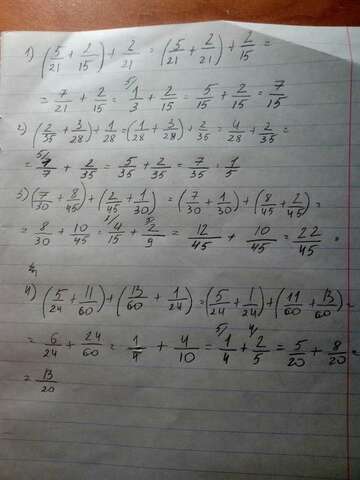 1) (5/21 + 2/15) + 2/21 = (5/21 + 2/21) + 2/15 =
= 7/21 + 2/15 = 5/ 1/3 + 2/15 = 5/15 + 2/15 = 7/15
2) (2/35 + 3/28) + 1/28 = (1/28 + 3/28) + 2/35 = 4/28 + 2/35 =
= 5/ 1/7 + 2/35 = 5/35 + 2/35 = 7/35 = 1/5
3) (7/30 + 8/45) + (2/45 + 1/30) = (7/30 + 1/30) + (8/45 + 2/45) =
= 8/30 + 10/45 = 4/15 + 2/9 = 12/45 + 10/45 = 22/45
4) (5/24 + 11/60) + (13/60 + 1/24) = (5/24 + 1/24) + (11/60 + 13/60) =
= 6/24 + 24/60 = 1/4 + 4/10 = 5/ 1/4 + 4/ 2/5 = 5/20 + 8/20 =
= 13/20